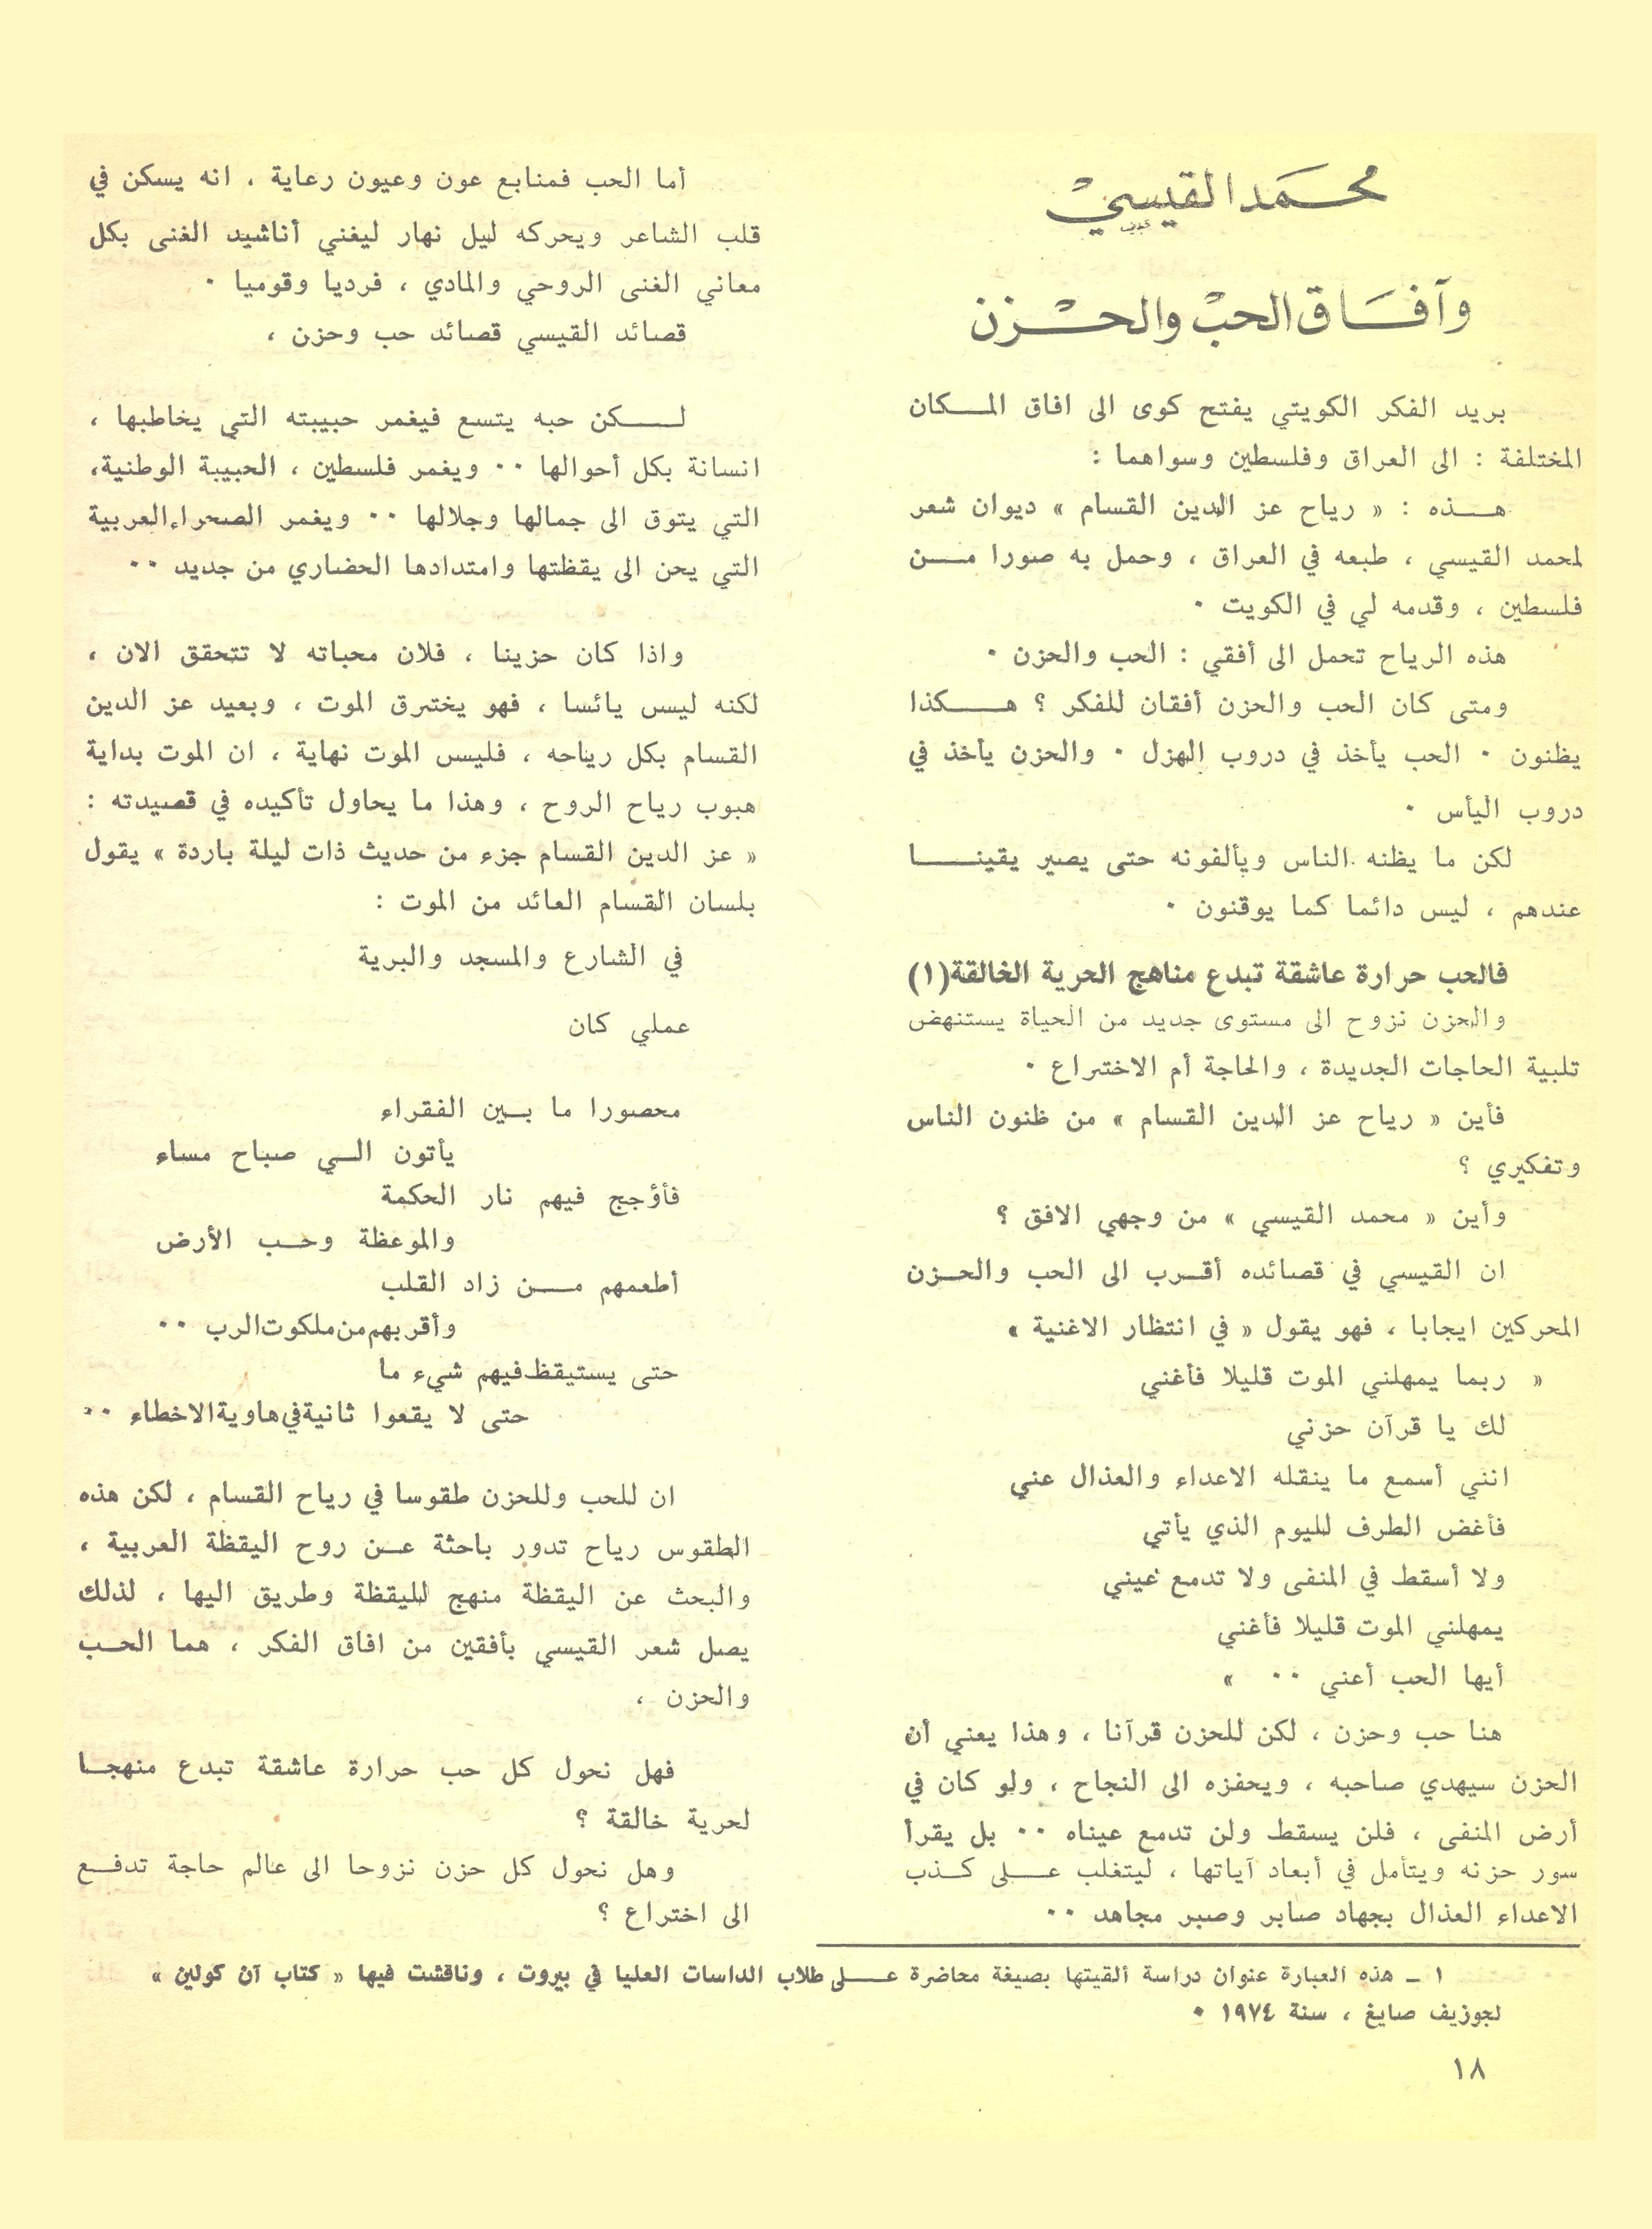 محمد القيسي
وآفاق الحب والحزن
بريد الفكر الكويتي يفتح كوى الى افاق المـكان
المختلفة : الى العراق وفلسطين وسواهما :
هـذه : « رياح عز الدين القسام » ديوان شعر
لمحمد القيسي ، طبعه في العراق ، وحمل به صورا مـن
فلسطين ، وقدمه لي في الكويت ٠
هذه الرياح تحمل الى أفقي : الحب والحزن ٠
ومتى كان الحب والحزن أفقان للفكر ؟ هـكذا
يظنون ٠ الحب يأخذ في دروب الهزل ٠ والحزن يأخذ في
دروب اليأس ٠
لكن ما يظنه الناس ويألفونه حتى يصير يقينـا
عندهم ، ليس دائما كما يوقنون ٠
فالحب حرارة عاشقة تبدع مناهج الحرية الخالقة(١)
والحزن نزوح الى مستوى جديد من الحياة يستنهض
تلبية الحاجات الجديدة ، والحاجة أم الاختراع ٠
فأين « رياح عز الدين القسام » من ظنون الناس
وتفكيري ؟
وأين « محمد القيسي » من وجهي الافق ؟
ان القيسي في قصائده أقـرب الى الحب والحـزن
المحركين ايجابا ، فهو يقول « في انتظار الاغنية »
« ربما يمهلني الموت قليلا فأغني
لك يا قرآن حزني
انني أسمع ما ينقله الاعداء والعذال عني
فأغض الطرف لليوم الذي يأتي
ولا أسقط في المنفى ولا تدمع عيني
يمهلني الموت قليلا فأغني
أيها الحب أعني ٠٠ »
هنا حب وحزن ، لكن للحزن قرآنا ، وهذا يعني أن
الحزن سيهدي صاحبه ، ويحفزه الى النجاح ، ولو كان في
أرض المنفى ، فلن يسقط ولن تدمع عيناه ٠٠ بل يقرأ
سور حزنه ويتأمل في أبعاد آياتها ، ليتغلب عـلى كـذب
الاعداء العذال بجهاد صابر وصبر مجاهد ٠٠
أما الحب فمنابع عون وعيون رعاية ، انه يسكن في
قلب الشاعر ويحركه ليل نهار ليغني أناشيد الغنى بكل
معاني الغنى الروحي والمادي ، فرديا وقوميا ٠
قصائد القيسي قصائد حب وحزن ،
لـكن حبه يتسع فيغمر حبيبته التي يخاطبها ،
انسانة بكل أحوالها ٠٠ ويغمر فلسطين ، الحبيبة الوطنية،
التي يتوق الى جمالها وجلالها ٠٠ ويغمر الصحراء العربية
التي يحن الى يقظتها وامتدادها الحضاري من جديد ٠٠
واذا كان حزينا ، فلان محباته لا تتحقق الان ،
لكنه ليس يائسا ، فهو يخترق الموت ، وبعيد عز الدين
القسام بكل رياحه ، فليس الموت نهاية ، ان الموت بداية
هبوب رياح الروح ، وهذا ما يحاول تأكيده في قصيدته :
« عز الدين القسام جزء من حديث ذات ليلة باردة » يقول
بلسان القسام العائد من الموت :
في الشارع والمسجد والبرية
عملي كان
محصورا ما بـين الفقراء
يأتون الـي صباح مساء
فأؤجج فيهم نار الحكمة
والموعظة وحـب الأرض
أطعمهم مـن زاد القلب
وأقربهم من ملكوت الرب ٠٠
حتى يستيقظ فيهم شيء ما
حتى لا يقعوا ثانية في هاوية الاخطاء ٠٠
ان للحب وللحزن طقوسا في رياح القسام ، لكن هذه
الطقوس رياح تدور باحثة عـن روح اليقظة العربية ،
والبحث عن اليقظة منهج لليقظة وطريق اليها ، لذلك
يصل شعر القيسي بأفقين من افاق الفكر ، هما الحـب
والحزن ،
فهل نحول كل حب حرارة عاشقة تبدع منهجـا
لحرية خالقة ؟
وهل نحول كل حزن نزوحا الى عالم حاجة تدفـع
الى اختراع ؟
١ ـ هذه العبارة عنوان دراسة ألقيتها بصيغة محاضرة عـلى طلاب الداسات العليا في بيروت ، وناقشت فيها « كتاب آن كولين »
لجوزيف صايغ ، سنة ١٩٧٤ ٠
١٨